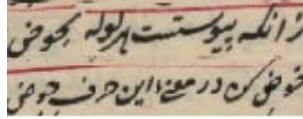 زانکه پیوستست هر لوله بحوض
خوض کن در معنی این حرف خوض